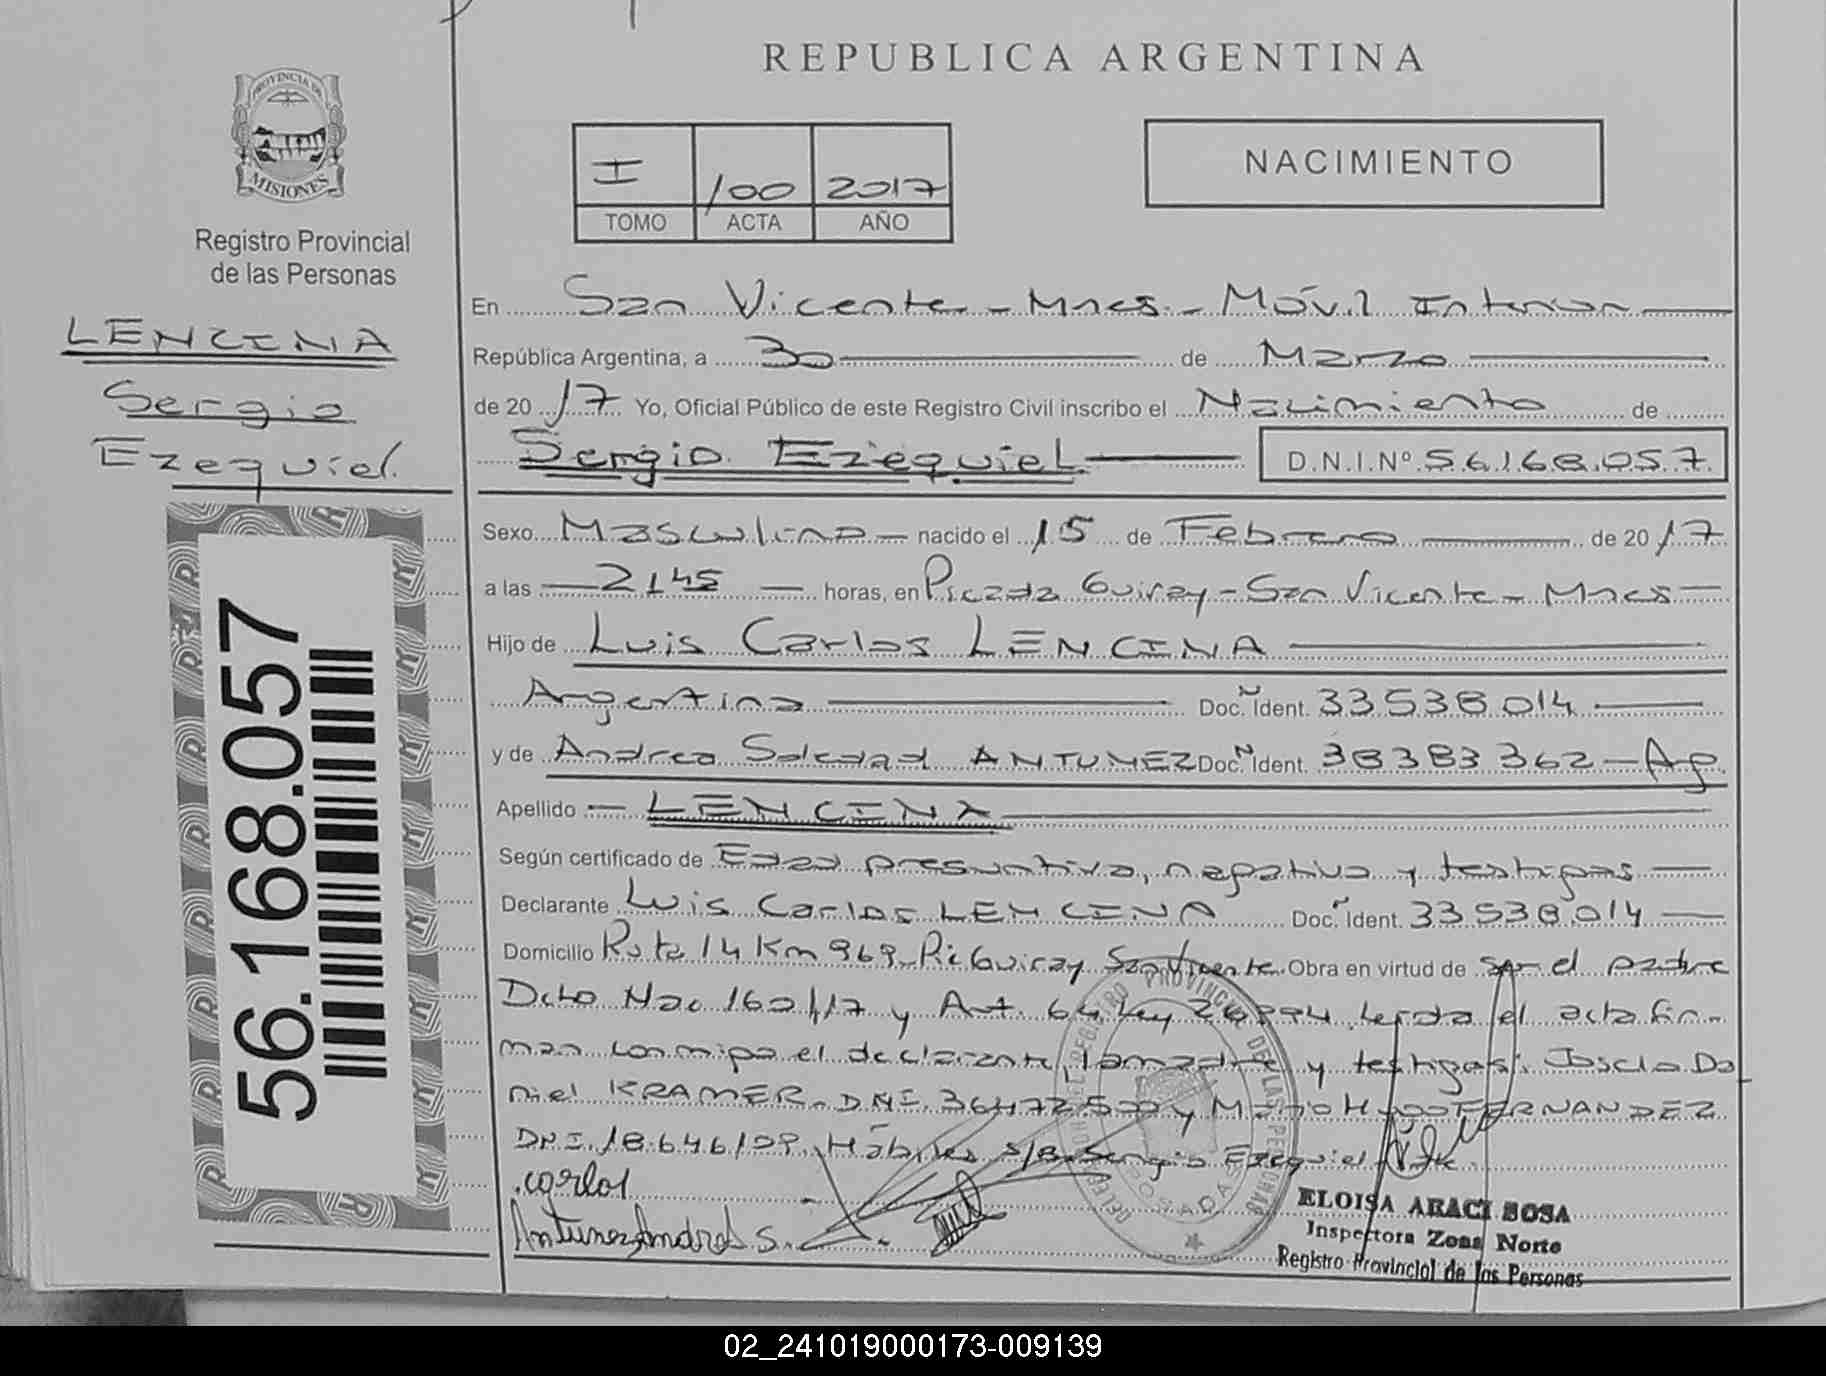 REPUBLICA ARGENTINA
PROVINCIA DE
MISIONES
Registro Provincial
de las Personas
I 100 2017
TOMO ACTA AÑO
NACIMIENTO
LENCINA
Sergio
Ezequiel.
56.168.057
En San Vicente - Mnes. - Móvil Interior
República Argentina, a 30 de Marzo
de 2017 Yo, Oficial Público de este Registro Civil inscribo el Nacimiento de
Sergio Ezequiel D.N.I.Nº 56.168.057.
Sexo Masculino nacido el 15 de Febrero de 2017
a las 21 45 horas, en Picada Guiray - San Vicente - Mnes
Hijo de Luis Carlos LENCINA
Argentina Doc. Ident. 33.538.014
y de Andrea Soledad ANTUNEZ Doc. Ident. 38383362 - Ag.
Apellido LENCINA
Según certificado de Edad presuntiva, negativo y testigos
Declarante Luis Carlos LENCINA Doc. Ident. 33.538.014
Domicilio Ruta 14 Km 969 - Pic Guiray San Vicente Obra en virtud de ser el padre
Dcto Nac 160/17 y Art. 64 Ley 26994. Leida el acta fir-
man conmigo el declarante, la madre y testigos: Da
niel KRAMER - DNI y Mario Hugo FERNANDEZ
DNI. Hábiles s/B. Sergio Ezequiel
carlos
Antunez Andrea S.
DELEGACION DEL REGISTRO PROVINCIAL DE LAS PERSONAS
POSADAS
ELOISA ARACI SOSA
Inspectora Zona Norte
Registro Provincial de las Personas
02_241019000173-009139